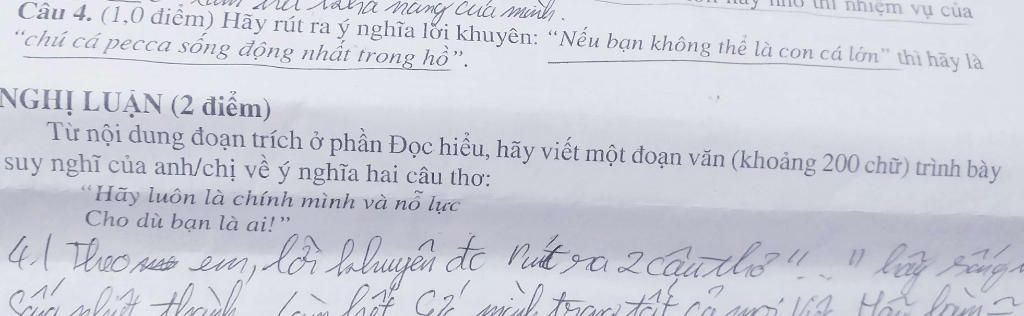 năng của mình.
nhỏ thì nhiệm vụ của
Câu 4. (1,0 điểm) Hãy rút ra ý nghĩa lời khuyên: “Nếu bạn không thể là con cá lớn” thì hãy là
“chú cá pecca sống động nhất trong hồ”.
NGHỊ LUẬN (2 điểm)
Từ nội dung đoạn trích ở phần Đọc hiểu, hãy viết một đoạn văn (khoảng 200 chữ) trình bày
suy nghĩ của anh/chị về ý nghĩa hai câu thơ:
“Hãy luôn là chính mình và nỗ lực
Cho dù bạn là ai!”
4.) Theo em, lời khuyên đc rút ra 2 câu thơ "..." hãy sống
hết mình trong tất cả mọi